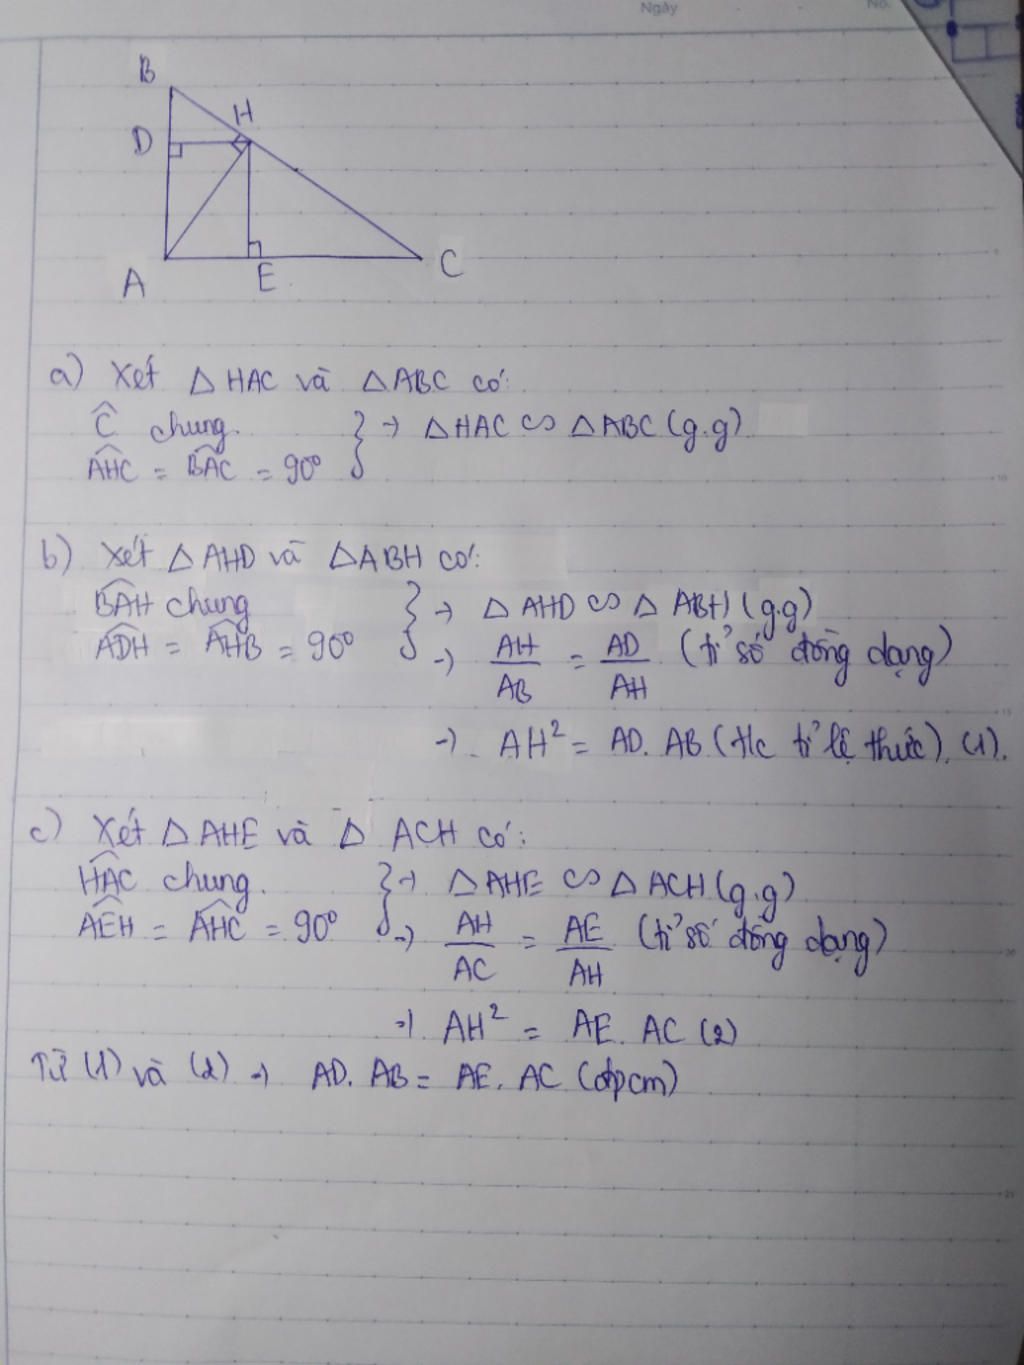 Ngày
No.
B
H
D
A
E
C
a) Xét △ HAC và △ABC có:
Ĉ chung.
} → △HAC ∽ △ABC (g.g)
AHC = BAC = 90°
b) Xét △AHD và △ABH có:
BAH chung
} → △ AHD ∽ △ ABH (g.g)
ADH = AHB = 90°
→ AH/AB = AD/AH (tỉ số đồng dạng)
→ AH² = AD. AB (t/c tỉ lệ thức). (1).
c) Xét △AHE và △ ACH có:
HAC chung.
} → △AHE ∽ △ACH (g.g)
AEH = AHC = 90°
→ AH/AC = AE/AH (tỉ số đồng dạng)
→ AH² = AE. AC (2)
Từ (1) và (2) → AD. AB = AE. AC (đpcm)